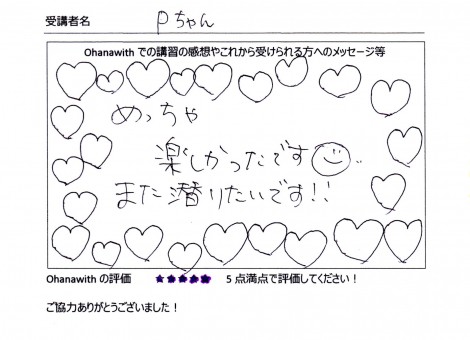 受講者名 Pちゃん
Ohanawith での講習の感想やこれから受けられる方へのメッセージ等
めっちゃ
楽しかったです
また潜りたいです!!
Ohanawith の評価 ★★★★★ 5点満点で評価してください！
ご協力ありがとうございました！